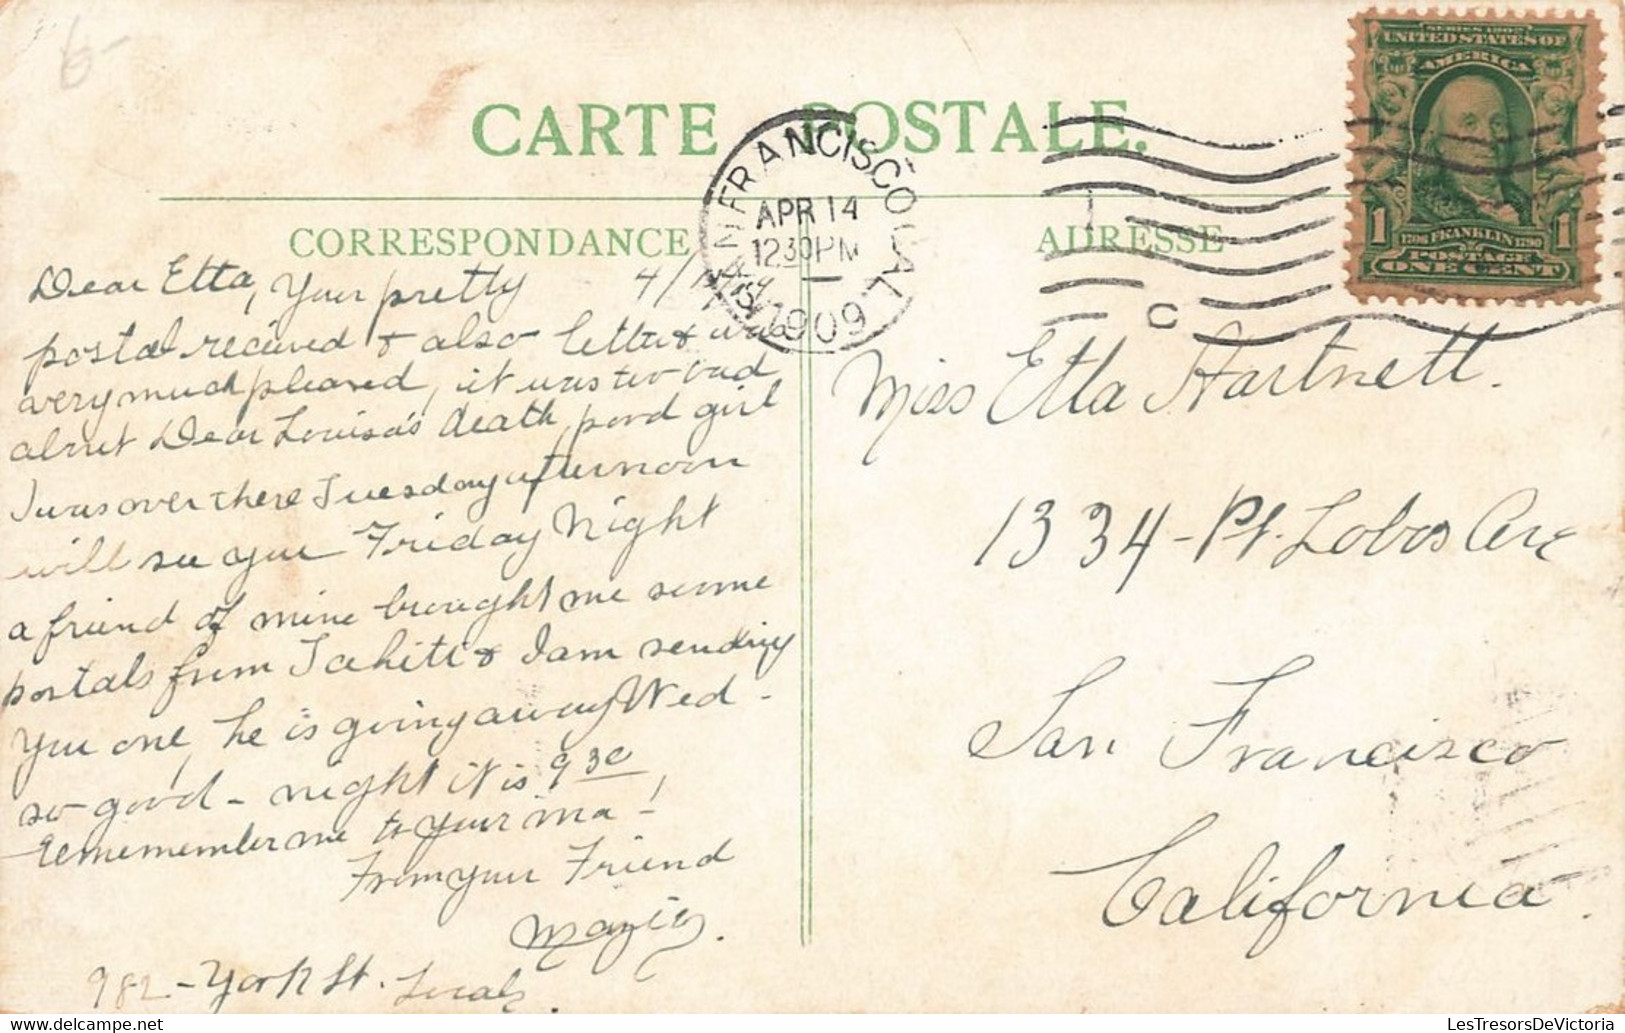 6-
CARTE POSTALE.
SAN FRANCISCO, CAL.
APR 14
1230PM
1909
C
SERIES 1902
UNITED STATES OF
AMERICA
1 1
1706 FRANKLIN 1790
POSTAGE
ONE CENT
CORRESPONDANCE
ADRESSE
Dear Etta, Your pretty 4/
postal recieved & also letter & was
very much pleased, it was too bad
about Dear Louisa's death, poor girl
I was over there Tuesday afternoon
will see you Friday Night
a friend of mine brought me some
postals from Tahiti & I am sending
you one, he is going away Wed-
so good-night it is 9 30
Rememember me to your ma-!
From your Friend
982-York St.
Miss Etta Hartnett.
1334-Pt. Lobos Ave
San Francisco
California.
LesTresorsDeVictoria